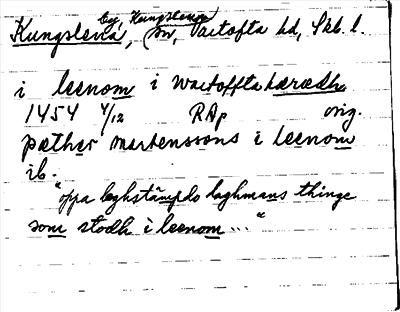 by, Kungslena
Kungslena, sn, Vartofta hd, Skb. l.
i leenom i wartoffta hærædhe
1454 4/12 RAp orig.
pæther martenssons i leenom
ib.
"oppa leghstæmpdo laghmans thinge
som stodh i leenom ..."